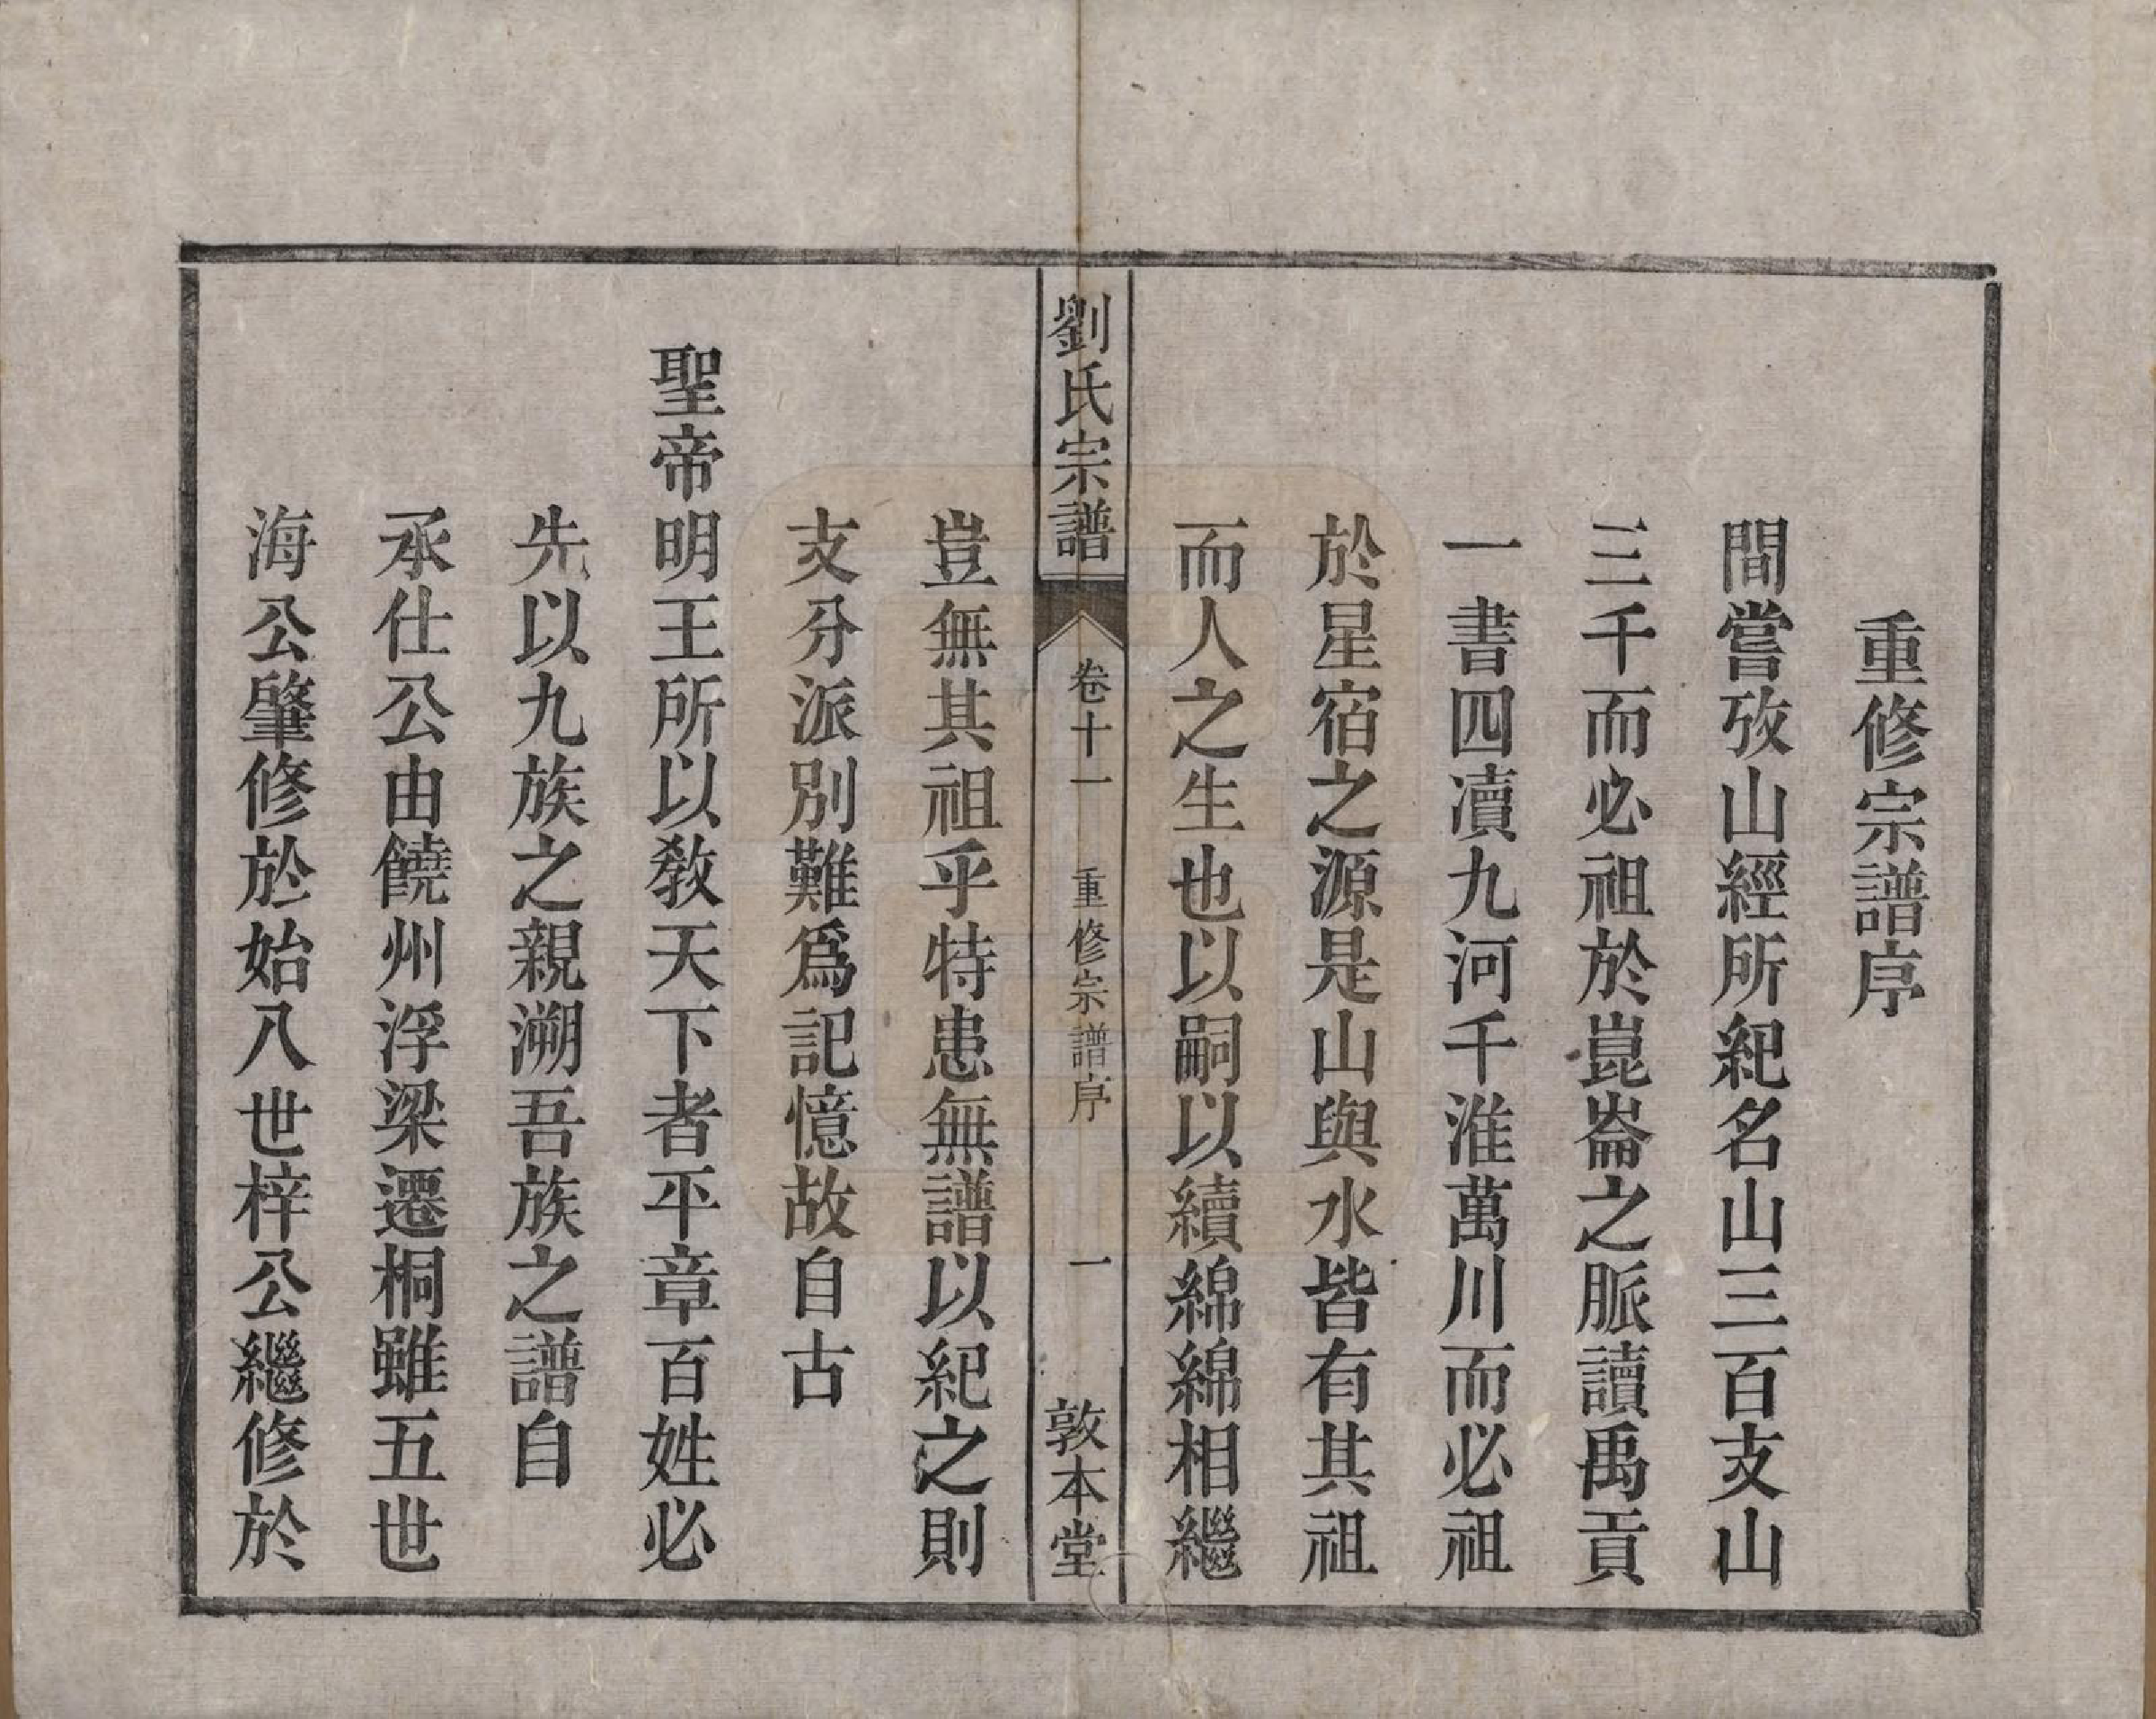 重修宗譜序
間嘗攷山經所紀名山三百支山
三千而必祖於崑崙之脈讀禹貢
一書四瀆九河千淮萬川而必祖
於星宿之源是山與水皆有其祖
而人之生也以嗣以續綿綿相繼
劉氏宗譜
卷十一
重修宗譜序
一
敦本堂
豈無其祖乎特患無譜以紀之則
支分派別難爲記憶故自古
聖帝明王所以教天下者平章百姓必
先以九族之親溯吾族之譜自
承仕公由饒州浮梁遷桐雖五世
海公肇修於始八世梓公繼修於